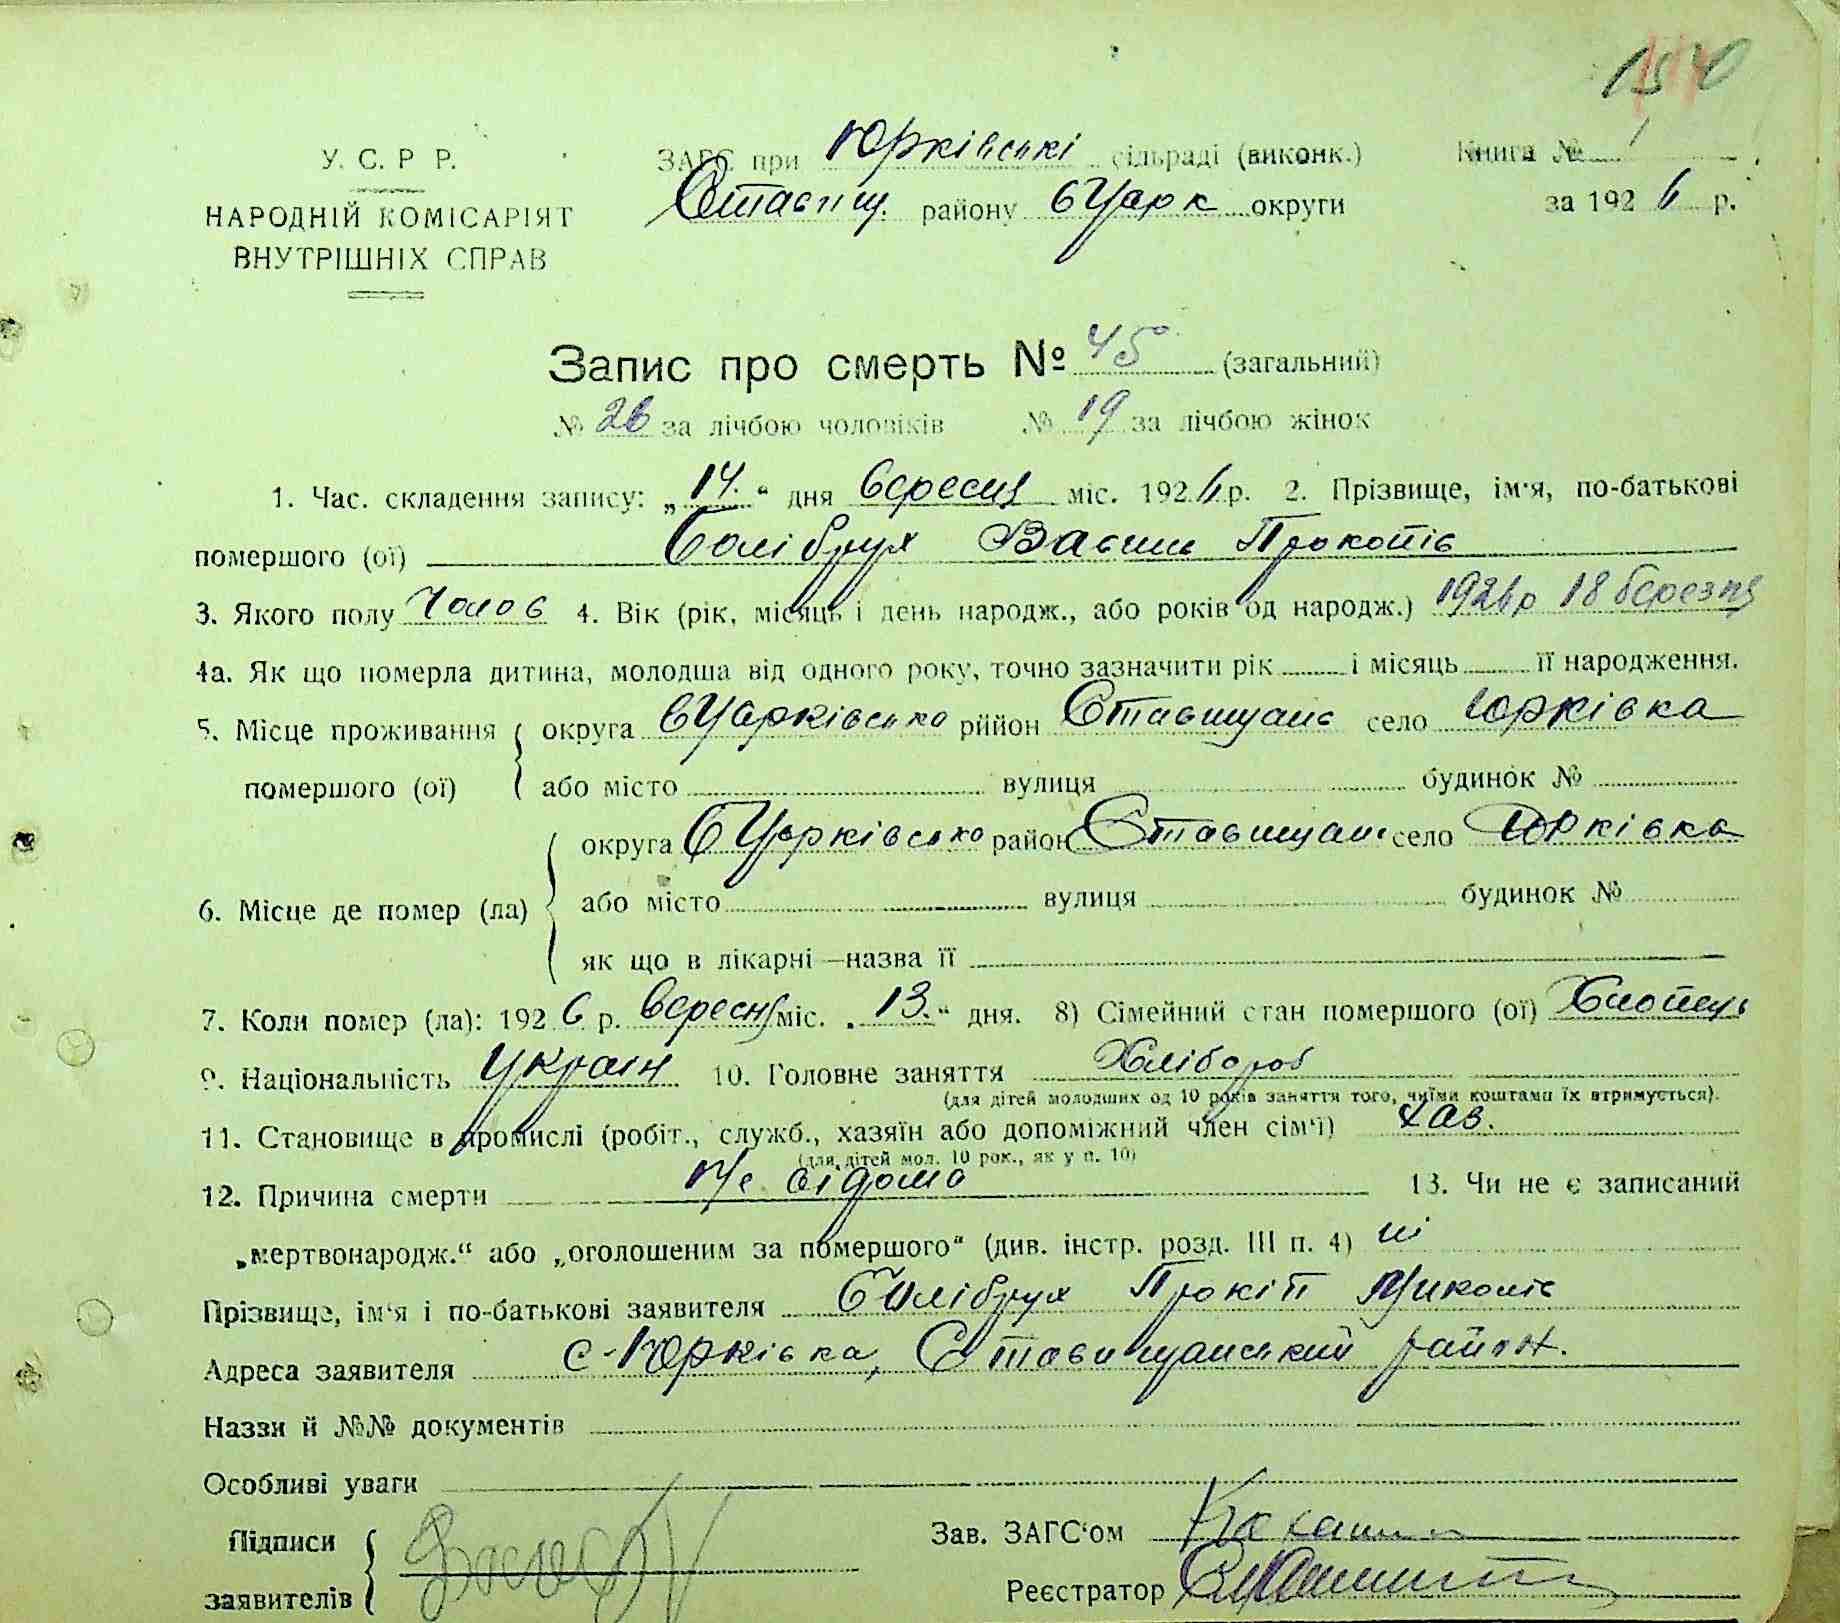 150
У. С. Р Р. ЗАГС при Юрківські сільраді (виконк.) Книга № 1
Ставищ. району БЦарк округи за 1926 р.
НАРОДНІЙ КОМІСАРІЯТ
ВНУТРІШНІХ СПРАВ
Запис про смерть № 45 (загальний)
№ 26 за лічбою чоловіків № 19 за лічбою жінок
1. Час. складення запису: „14.“ дня вересня міс. 1926 р. 2. Прізвище, ім'я, по-батькові
помершого (ої) Болібрух Василь Прокопів
3. Якого полу Чолов 4. Вік (рік, місяць і день народж., або років од народж.) 1926 р 18 березня
4а. Як що померла дитина, молодша від одного року, точно зазначити рік і місяць її народження.
5. Місце проживання округа БЦарківсько рййон Ставищанс село Юрківка
помершого (ої) або місто вулиця будинок №
округа БЦарківсько район Ставищан село Юрківка
6. Місце де помер (ла) або місто вулиця будинок №
як що в лікарні—назва її
7. Коли помер (ла): 1926 р. вересня міс. „13.“ дня. 8) Сімейний стан помершого (ої) Хлопець
9. Національність Україн 10. Головне заняття Хлібороб
(для дітей молодших од 10 років заняття того, чиїми коштами їх втримується).
11. Становище в промислі (робіт., служб., хазяїн або допоміжний член сім'ї) хаз.
(для дітей мол. 10 рок., як у п. 10)
12. Причина смерти Не відома 13. Чи не є записаний
„мертвонародж.“ або „оголошеним за помершого“ (див. інстр. розд. III п. 4) ні
Прізвище, ім'я і по-батькові заявителя Болібрух Прокіп Миколів
Адреса заявителя с-Юрківка, Ставищанський район.
Наззи й №№ документів
Особливі уваги
Підписи Зав. ЗАГС'ом
заявителів Реєстратор